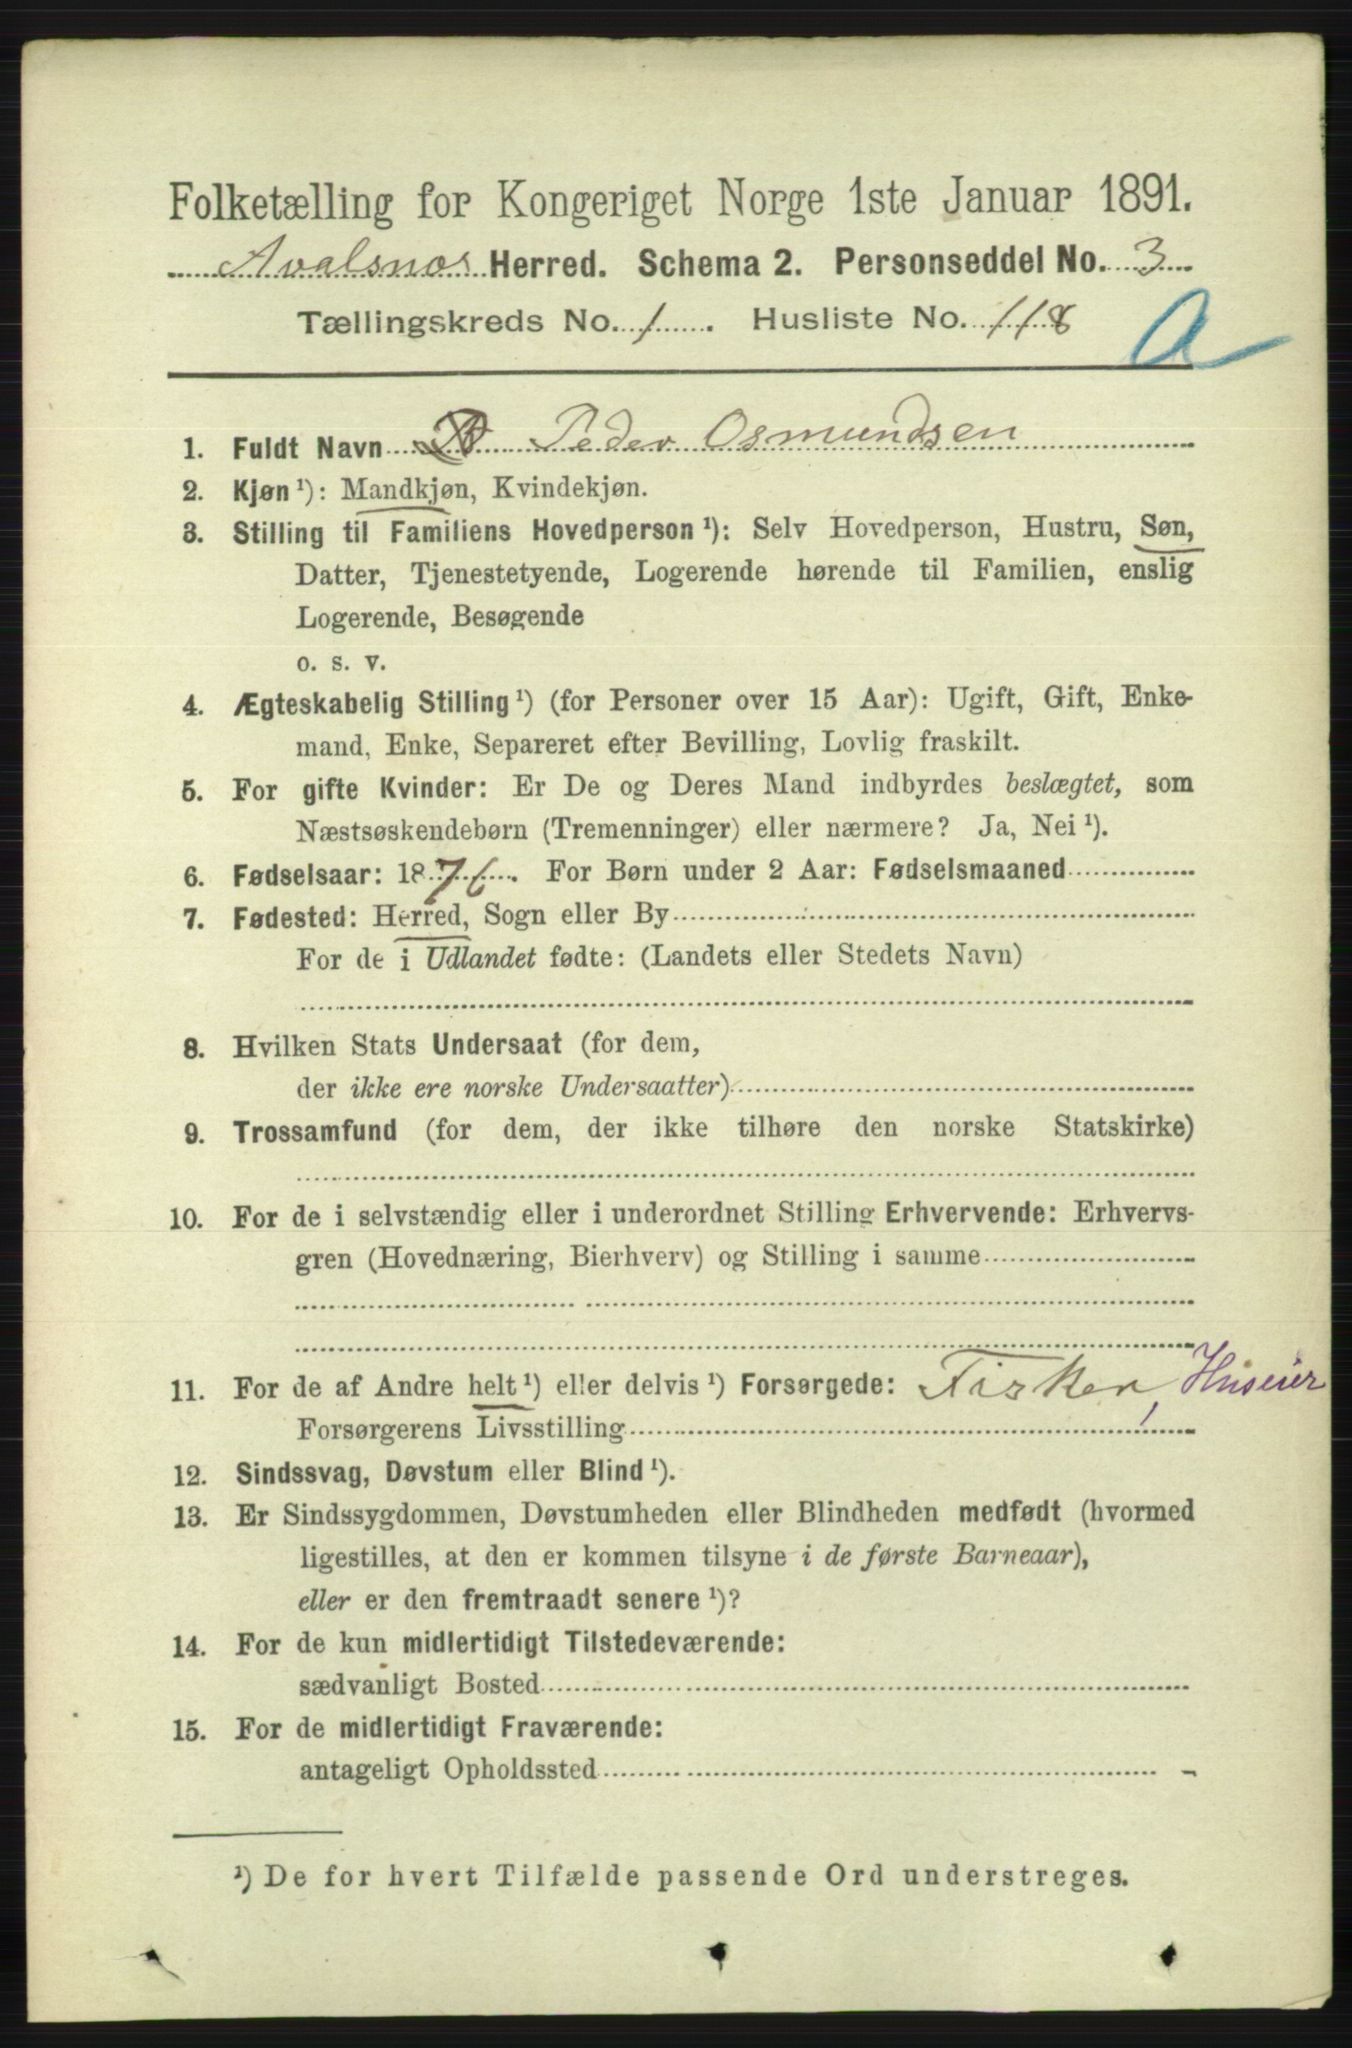 Folketælling for Kongeriget Norge 1ste Januar 1891.
Avalsnes Herred. Schema 2. Personseddel No. 3
Tællingskreds No. 1. Husliste No. 118
A
1. Fuldt Navn Peder Osmundsen
2. Kjøn ¹): Mandkjøn, Kvindekjøn.
3. Stilling til Familiens Hovedperson ¹): Selv Hovedperson, Hustru, Søn,
Datter, Tjenestetyende, Logerende hørende til Familien, enslig
Logerende, Besøgende
o. s. v.
4. Ægteskabelig Stilling ¹) (for Personer over 15 Aar): Ugift, Gift, Enke-
mand, Enke, Separeret efter Bevilling, Lovlig fraskilt.
5. For gifte Kvinder: Er De og Deres Mand indbyrdes beslægtet, som
Næstsøskendebørn (Tremenninger) eller nærmere? Ja, Nei ¹).
6. Fødselsaar: 1876. For Børn under 2 Aar: Fødselsmaaned
7. Fødested: Herred, Sogn eller By
For de i Udlandet fødte: (Landets eller Stedets Navn)
8. Hvilken Stats Undersaat (for dem,
der ikke ere norske Undersaatter)
9. Trossamfund (for dem, der ikke tilhøre den norske Statskirke)
10. For de i selvstændig eller i underordnet Stilling Erhvervende: Erhvervs-
gren (Hovednæring, Bierhverv) og Stilling i samme
11. For de af Andre helt ¹) eller delvis ¹) Forsørgede: Fisker, Huseier
Forsørgerens Livsstilling
12. Sindssvag, Døvstum eller Blind ¹).
13. Er Sindssygdommen, Døvstumheden eller Blindheden medfødt (hvormed
ligestilles, at den er kommen tilsyne i de første Barneaar),
eller er den fremtraadt senere ¹)?
14. For de kun midlertidigt Tilstedeværende:
sædvanligt Bosted
15. For de midlertidigt Fraværende:
antageligt Opholdssted
¹) De for hvert Tilfælde passende Ord understreges.